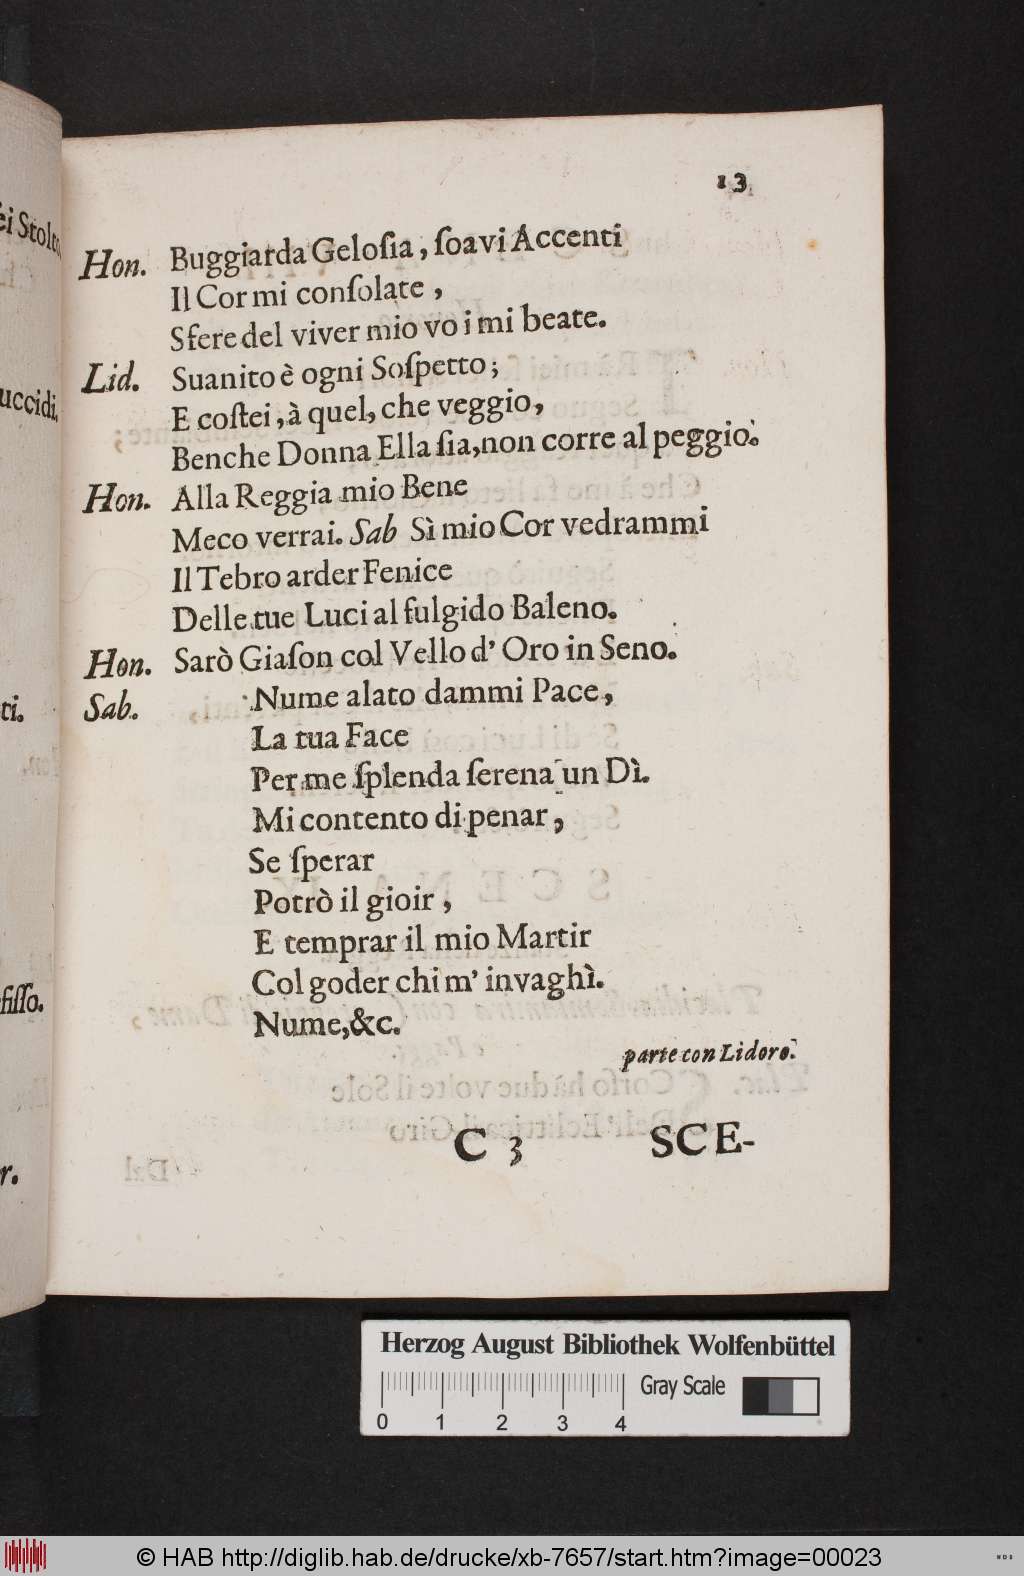 13
Hon. Buggiarda Geloſia, ſoavi Accenti
Il Cor mi conſolate,
Sfere del viver mio voi mi beate.
Lid. Suanito è ogni Soſpetto;
E coſtei, à quel, che veggio,
Benche Donna Ella ſia, non corre al peggio.
Hon. Alla Reggia mio Bene
Meco verrai. Sab Sì mio Cor vedrammi
Il Tebro arder Fenice
Delle tue Luci al fulgido Baleno.
Hon. Sarò Giaſon col Vello d' Oro in Seno.
Sab. Nume alato dammi Pace,
La tua Face
Per me ſplenda ſerena un Dì.
Mi contento di penar,
Se ſperar
Potrò il gioir,
E temprar il mio Martir
Col goder chi m' invaghì.
Nume, &c.
parte con Lidoro.
C 3 SCE-
ei Stolto
uccidi.
ti.
fiſſo.
r.
Herzog August Bibliothek Wolfenbüttel
0 1 2 3 4 Gray Scale
© HAB http://diglib.hab.de/drucke/xb-7657/start.htm?image=00023